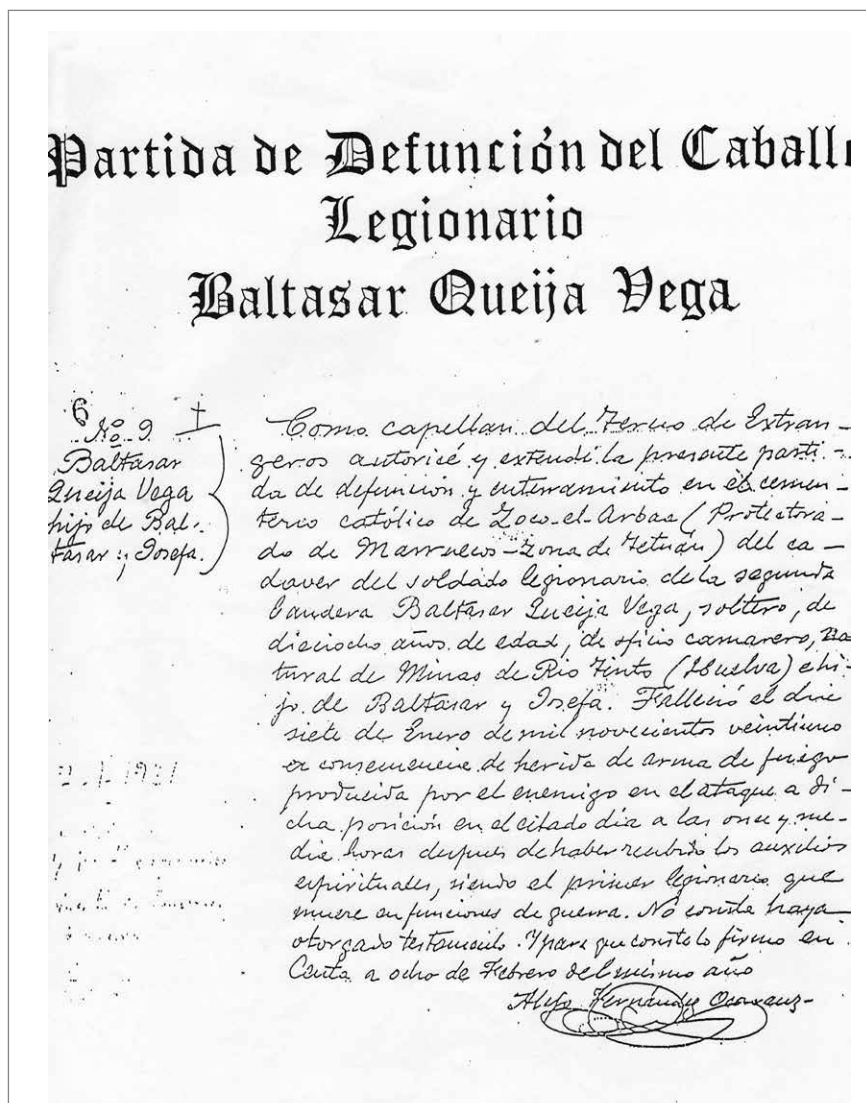 Partida de Defunción del Caballe
Legionario
Baltasar Queija Vega
6
Nº 9
Baltasar
Queija Vega
hijo de Bal-
tasar y Josefa.
Como capellan del Tercio de Extran-
geros autoricé y extendí la presente parti-
da de defunción y enterramiento en el cemen-
terio católico de Zoco-el-Arbaa (Protectora-
do de Marruecos-Zona de Tetuán) del ca-
daver del soldado legionario de la segunda
bandera Baltasar Queija Vega, soltero, de
dieciocho años de edad, de oficio camarero, na
tural de Minas de Rio Tinto (Huelva) e hi-
jo de Baltasar y Josefa. Falleció el dia
siete de Enero de mil novecientos veintiuno
a consecuencia de herida de arma de fuego
producida por el enemigo en el ataque a di-
cha posición en el citado dia a las once y me-
dia horas despues de haber recibido los auxilios
espirituales, siendo el primer legionario que
muere en funciones de guerra. No consta haya
otorgado testamento. Y para que conste lo firmo en
Ceuta a ocho de Febrero del mismo año
Alejo Fernández
1921